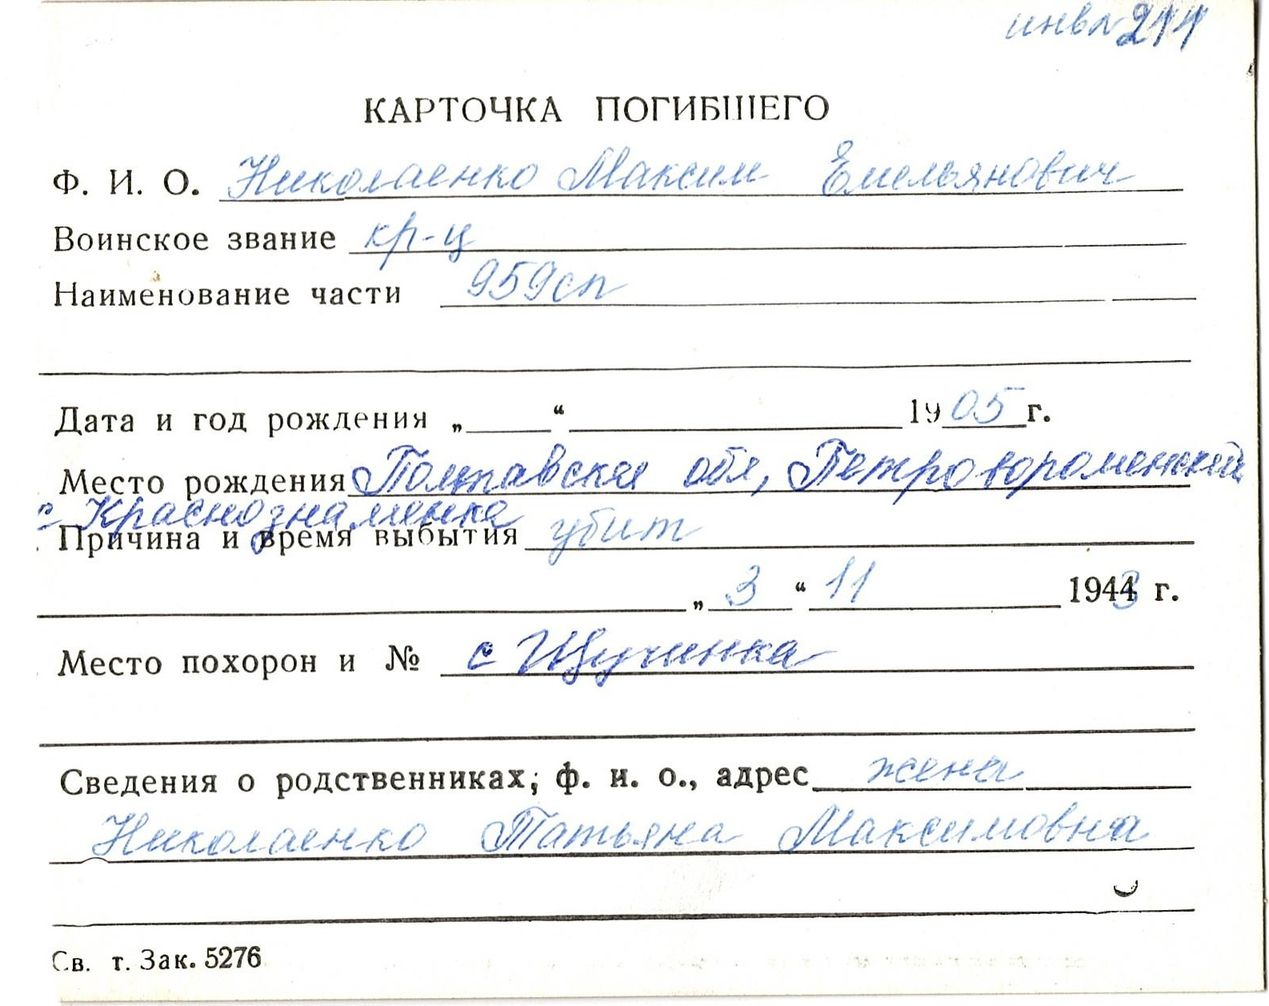 инвл 211
КАРТОЧКА ПОГИБШЕГО
Ф. И. О. Николаенко Максим Емельянович
Воинское звание кр-ц
Наименование части 959сп
Дата и год рождения „ “ 1905 г.
Место рождения Полтавска обл, Петровороменский
с Краснознаменка
Причина и время выбытия убит
„ 3 “ 11 1943 г.
Место похорон и № с Щучинка
Сведения о родственниках, ф. и. о., адрес жена
Николаенко Татьяна Максимовна
Св. т. Зак. 5276